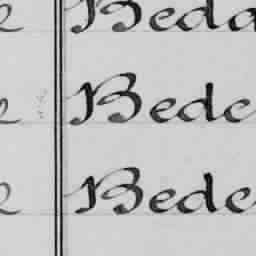 Beda
Bedc
Bedc